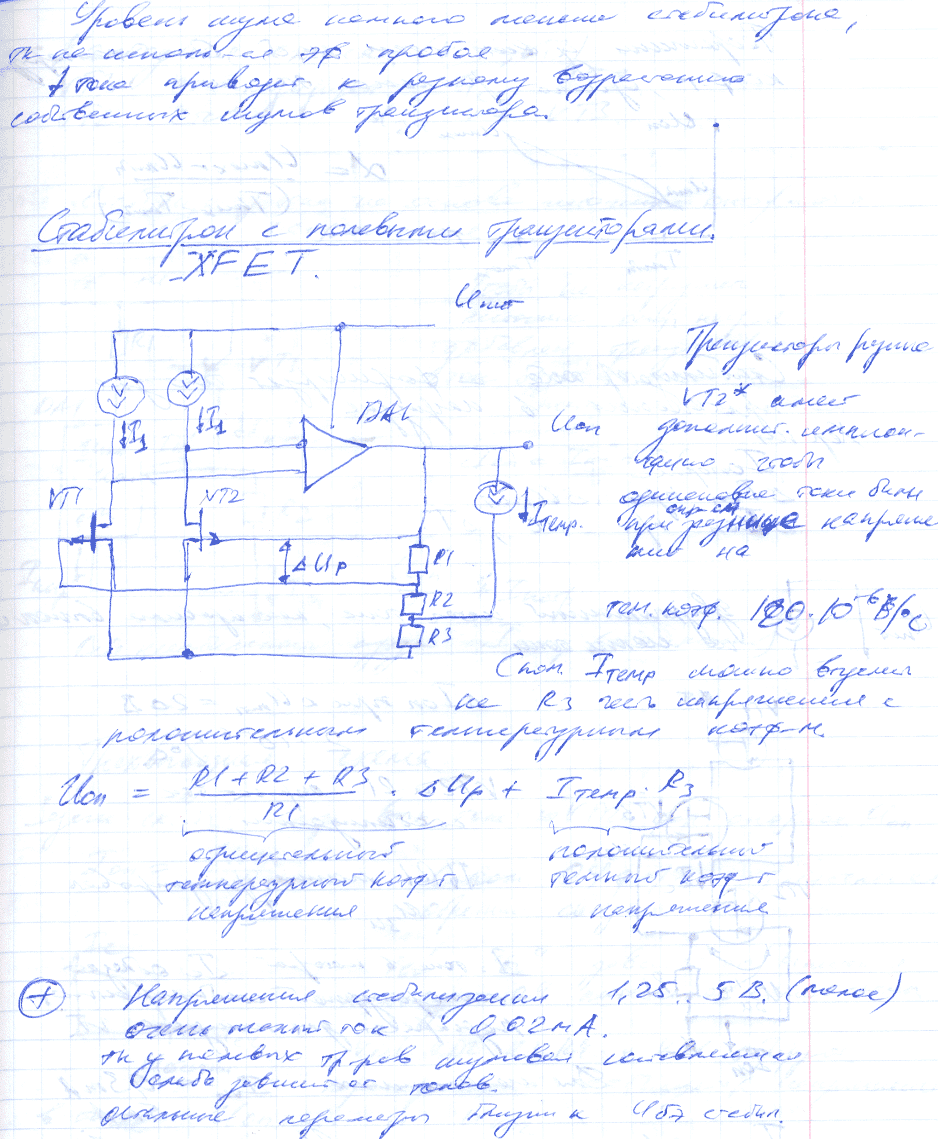 Уровень шума намного меньше стабилитрона,
тк не использ-ся эф пробоя
↑ тока приводит к резкому возрастанию
собственных шумов транзистора.
Стабилитрон с полевыми транзисторами.
XFET.
Uпит
I1
I1
DA1
Uоп
VT1
VT2
Iтемр.
ΔUp
R1
R2
R3
Транзисторы
VT2* имеет
дополнит. имплан-
тацию чтобы
одинаковые токи были
при разнице напряже
ний на
тем. коэф. 120·10⁻⁶ В/°C
С пом. Iтемр можно
на R3 часть напряжения с
положительным температурным коэф-м.
Uоп = (R1+R2+R3)/R1 · ΔUp + Iтемр·R3
отрицательный
температурный коэф-т
напряжения
положительный
темпный коэф-т
напряжения
+ Напряжения стабилизации 1,25..5 В.
очень малый ток 0,02 мА.
тк у полевых тр-ров шумовая составляющая
слабо зависит от токов.
остальные параметры близки к Uбэ стабил.